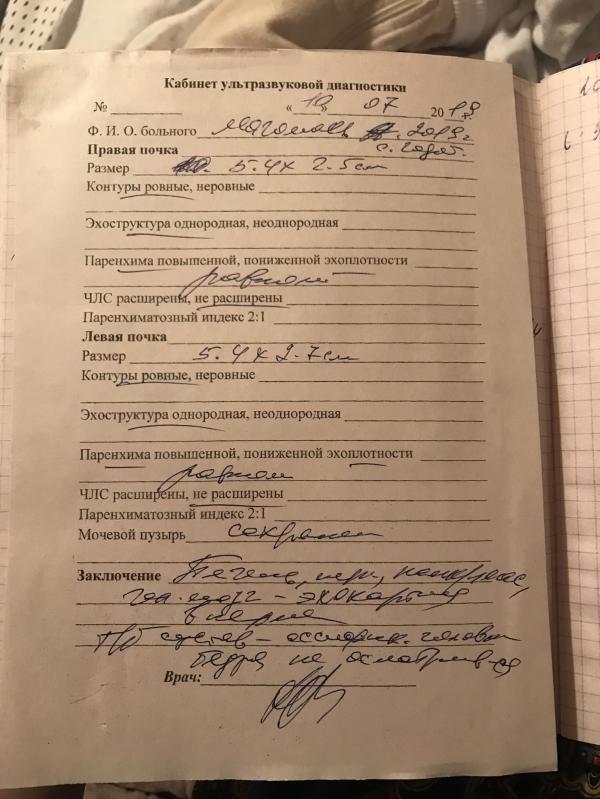 Кабинет ультразвуковой диагностики
№ «19» 07 2019
Ф. И. О. больного 2019г
Правая почка
Размер 5.4 х 2.5 см
Контуры ровные, неровные
Эхоструктура однородная, неоднородная
Паренхима повышенной, пониженной эхоплотности
равной
ЧЛС расширены, не расширены
Паренхиматозный индекс 2:1
Левая почка
Размер 5.4 х 2.7 см
Контуры ровные, неровные
Эхоструктура однородная, неоднородная
Паренхима повышенной, пониженной эхоплотности
равной
ЧЛС расширены, не расширены
Паренхиматозный индекс 2:1
Мочевой пузырь сокращен
Заключение Печень, панкреас,
эхокартина
в норме
Т/б сустав – головки
бедра не осматрив-ся
Врач: